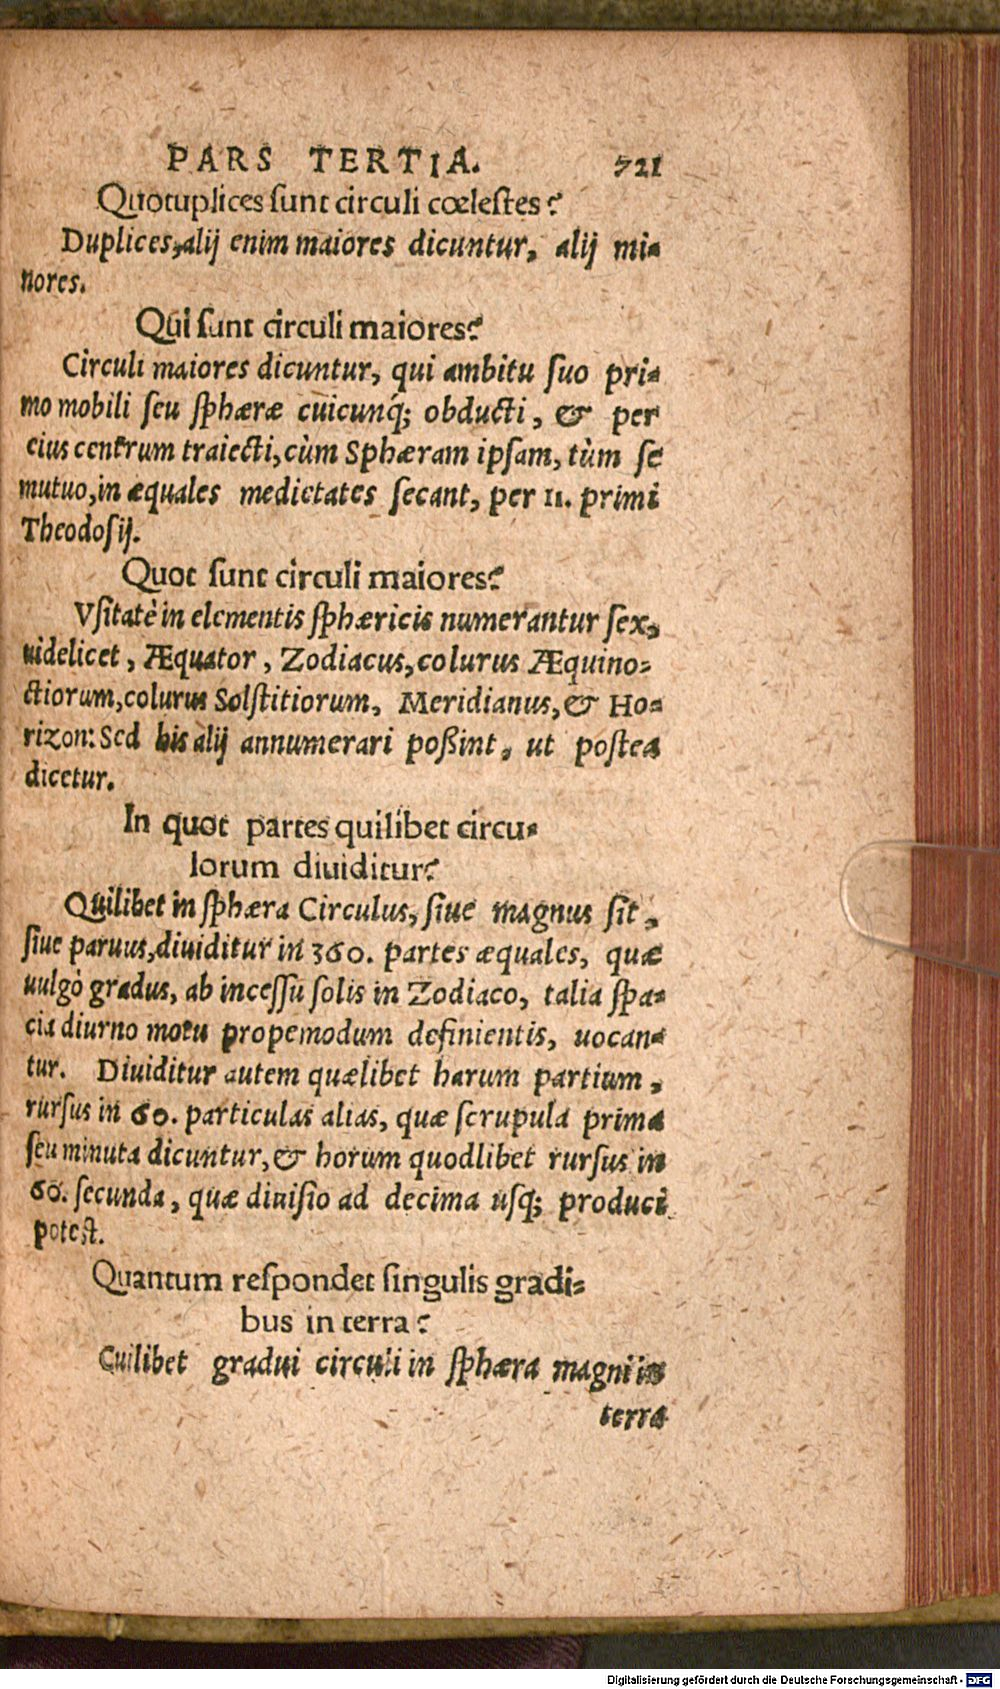 PARS TERTIA. 721
Quotuplices sunt circuli cœlestes?
Duplices, alij enim maiores dicuntur, alij mi-
nores.
Qui sunt circuli maiores?
Circuli maiores dicuntur, qui ambitu suo pri-
mo mobili seu sphæræ cuicunq́; obducti, & per
eius centrum traiecti, cùm Sphæram ipsam, tùm se
mutuo, in æquales medietates secant, per 11. primi
Theodosij.
Quot sunt circuli maiores?
Vsitatè in elementis sphæricis numerantur sex,
uidelicet, Æquator, Zodiacus, colurus Æquino-
ctiorum, colurus Solstitiorum, Meridianus, & Ho-
rizon: Sed his alij annumerari poßint, ut postea
dicetur.
In quot partes quilibet circu-
lorum diuiditur?
Quilibet in sphæra Circulus, siue magnus sit,
siue paruus, diuiditur in 360. partes æquales, quæ
uulgò gradus, ab incessu solis in Zodiaco, talia spa-
cia diurno motu propemodum definientis, uocan-
tur. Diuiditur autem quælibet harum partium,
rursus in 60. particulas alias, quæ scrupula prima
seu minuta dicuntur, & horum quodlibet rursus in
60. secunda, quæ diuisio ad decima usq; produci
potest.
Quantum respondet singulis gradi-
bus in terra?
Cuilibet gradui circuli in sphæra magni in
terra
Digitalisierung gefördert durch die Deutsche Forschungsgemeinschaft - DFG